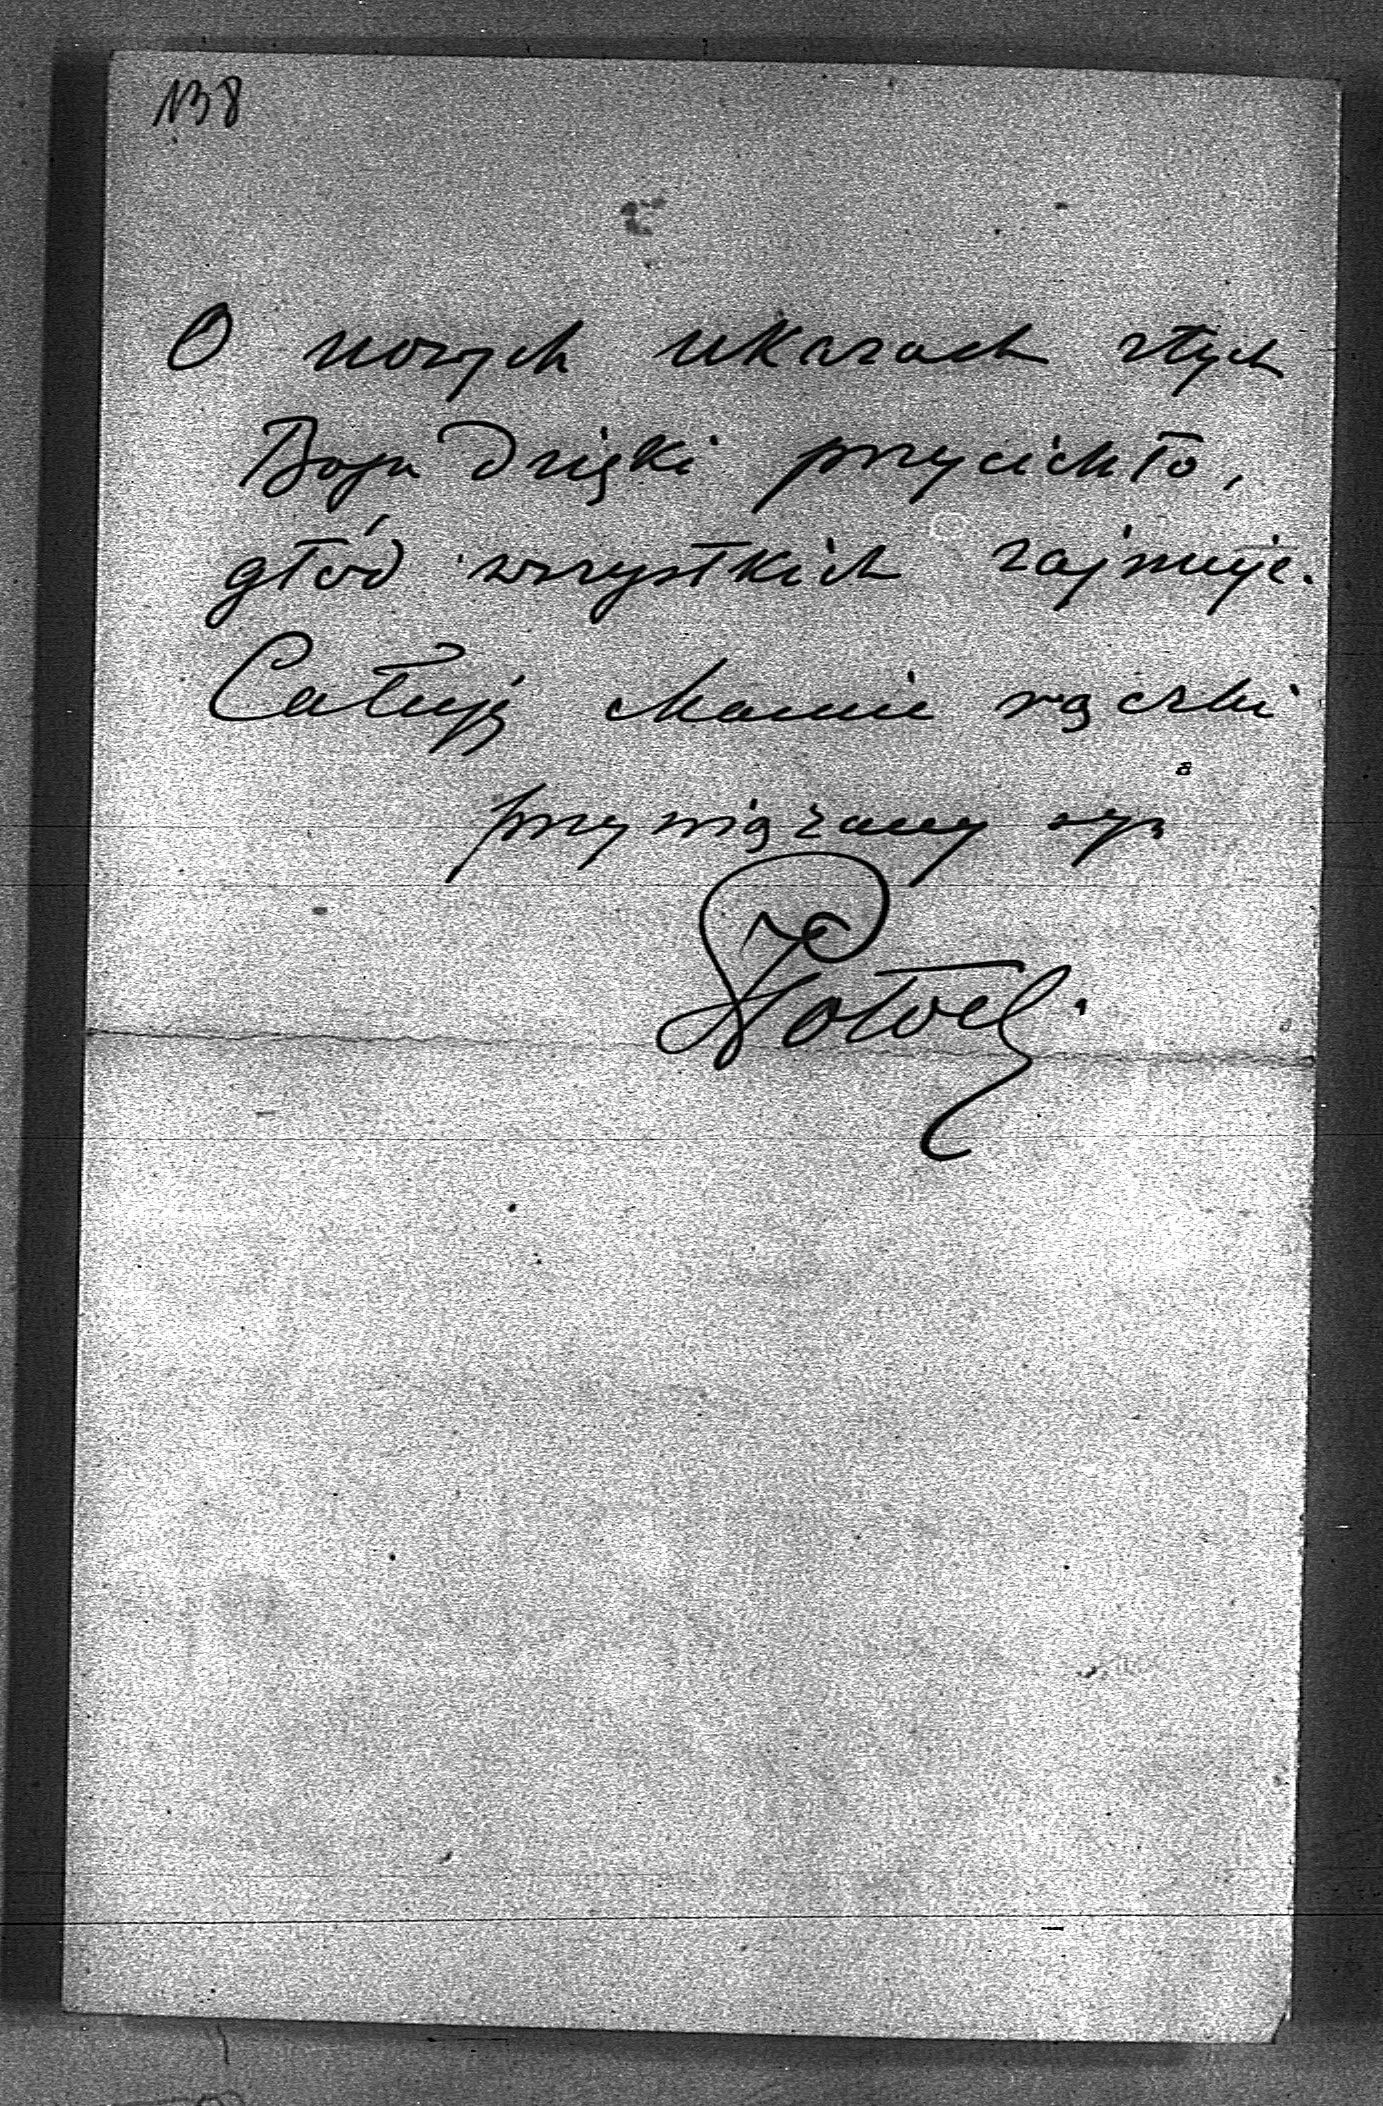 138
O nowych ukazach złych
Bogu Dzięki przycichło,
głód wszystkich zajmuje.
Całuję Mamie rączki
przywiązany syn